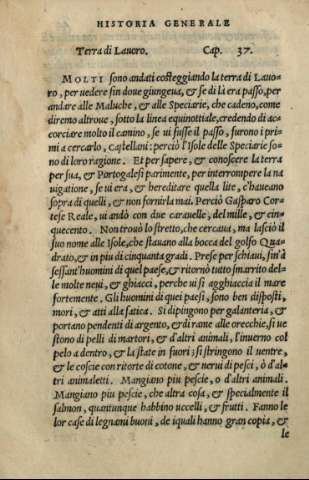 HISTORIA GENERALE
Terra di Lauoro. Cap. 37.
MOLTI sono andati costeggiando la terra di Lauo-
ro, per uedere fin doue giungeua, & se di li era passo, per
andare alle Maluche, & alle Speciarie, che cadeno, come
diremo altroue, sotto la linea equinottiale, credendo di ac-
corciare molto il camino, se ui fusse il passo, furono i pri-
mi a cercarlo, Castellani: perciò l'Isole delle Speciarie so-
no di loro ragione. Et per sapere, & conoscere la terra
per sua, & Portogalesi parimente, per interrompere la na
uigatione, se ui era, & hereditare quella lite, c'haueano
sopra di quelli, & non fornirla mai. Perciò Gasparo Cor-
tese Reale, ui andò con due carauelle, del mille, & cin-
quecento. Non trouò lo stretto, che cercaua, ma lasciò il
suo nome alle Isole, che stauano alla bocca del golfo Qua-
drato, & in piu di cinquanta gradi. Prese per schiaui, fin'à
sessant'huomini di quel paese, & ritornò tutto smarrito del-
le molte neui, & ghiacci, perche ui si agghiaccia il mare
fortemente. Gli huomini di quei paesi, sono ben disposti,
mori, & atti alla fatica. Si dipingono per galanteria, &
portano pendenti di argento, & di rame alle orecchie, si ue
stono di pelli di martori, & d'altri animali, l'inuerno col
pelo a dentro, & la state in fuori; si stringono il uentre,
& le coscie con ritorte di cotone, & nerui di pesci, ò d'al-
tri animaletti. Mangiano piu pescie, o d'altri animali.
Mangiano piu pescie, che altra cosa, & specialmente il
salmon, quantunque habbino uccelli, & frutti. Fanno le
lor case di legnami buoni, de iquali hanno gran copia, &
le